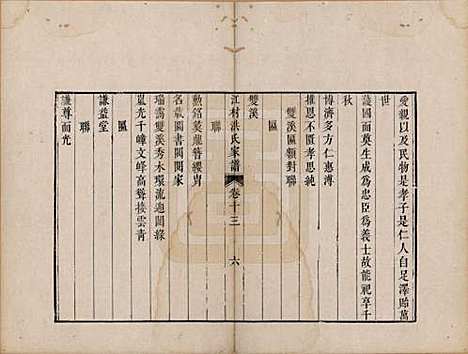 愛親以及民物是孝子是仁人自足澤貽萬
世
護國而奠生成為忠臣為義士故能祀享千
秋
博濟多方仁惠溥
推恩不匱孝思純
雙溪區額對聯
區
雙溪
江村洪氏家譜 卷十三 六
聯
勲銘葵鼎簪纓冑
名載閥書閥閱家
瑞靄雙溪秀水環流過閬綠
嵐光千嶂文峰高聳接雲青
區
謙益堂
聯
謙尊而光